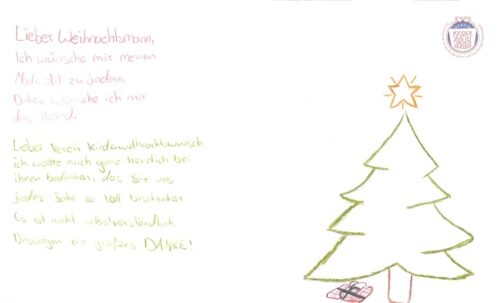 Lieber Weihnachtsmann,
ich wünsche mir meinen
Modestil zu ändern.
Daher wünsche ich mir
das Hemd.
Lieber Verein Kinderweihnachtswunsch,
ich wollte mich ganz herzlich bei
ihnen bedanken, das Sie uns
jedes Jahr so toll beschenken
Es ist nicht selbstverständlich
Deswegen ein großes DANKE!